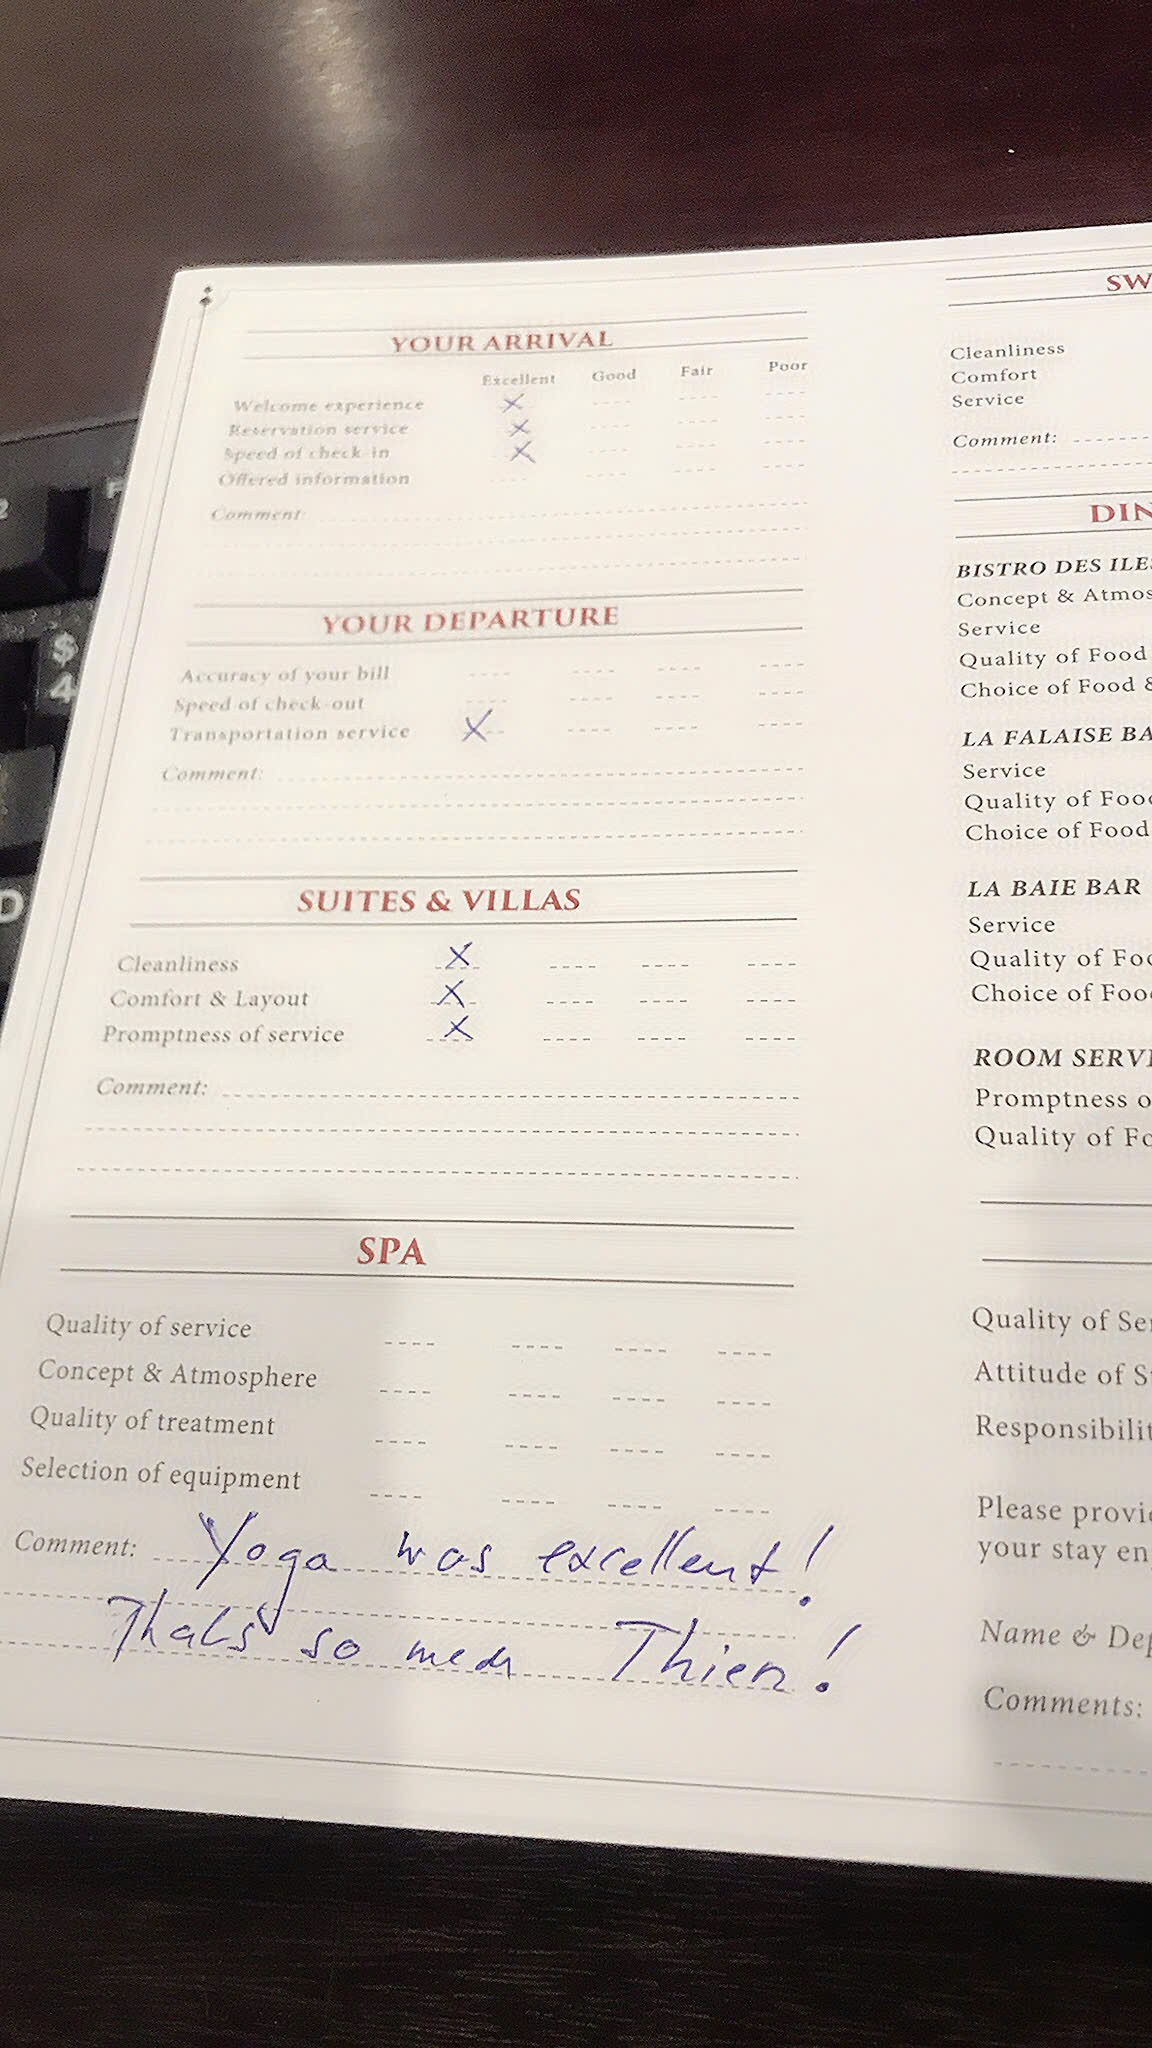 YOUR ARRIVAL
Excellent Good Fair Poor
Welcome experience X
Reservation service X
Speed of check-in X
Offered information
Comment:
YOUR DEPARTURE
Accuracy of your bill
Speed of check-out
Transportation service X
Comment:
SUITES & VILLAS
Cleanliness X
Comfort & Layout X
Promptness of service X
Comment:
SPA
Quality of service
Concept & Atmosphere
Quality of treatment
Selection of equipment
Comment: Yoga was excellent!
Thats so Thien!
SW
Cleanliness
Comfort
Service
Comment:
DIN
BISTRO DES ILES
Concept & Atmos
Service
Quality of Food
Choice of Food &
LA FALAISE BA
Service
Quality of Food
Choice of Food
LA BAIE BAR
Service
Quality of Foo
Choice of Food
ROOM SERVI
Promptness o
Quality of Fo
Quality of Ser
Attitude of S
Responsibilit
Please provi
your stay en
Name & Dep
Comments:
2
F
$
4
D